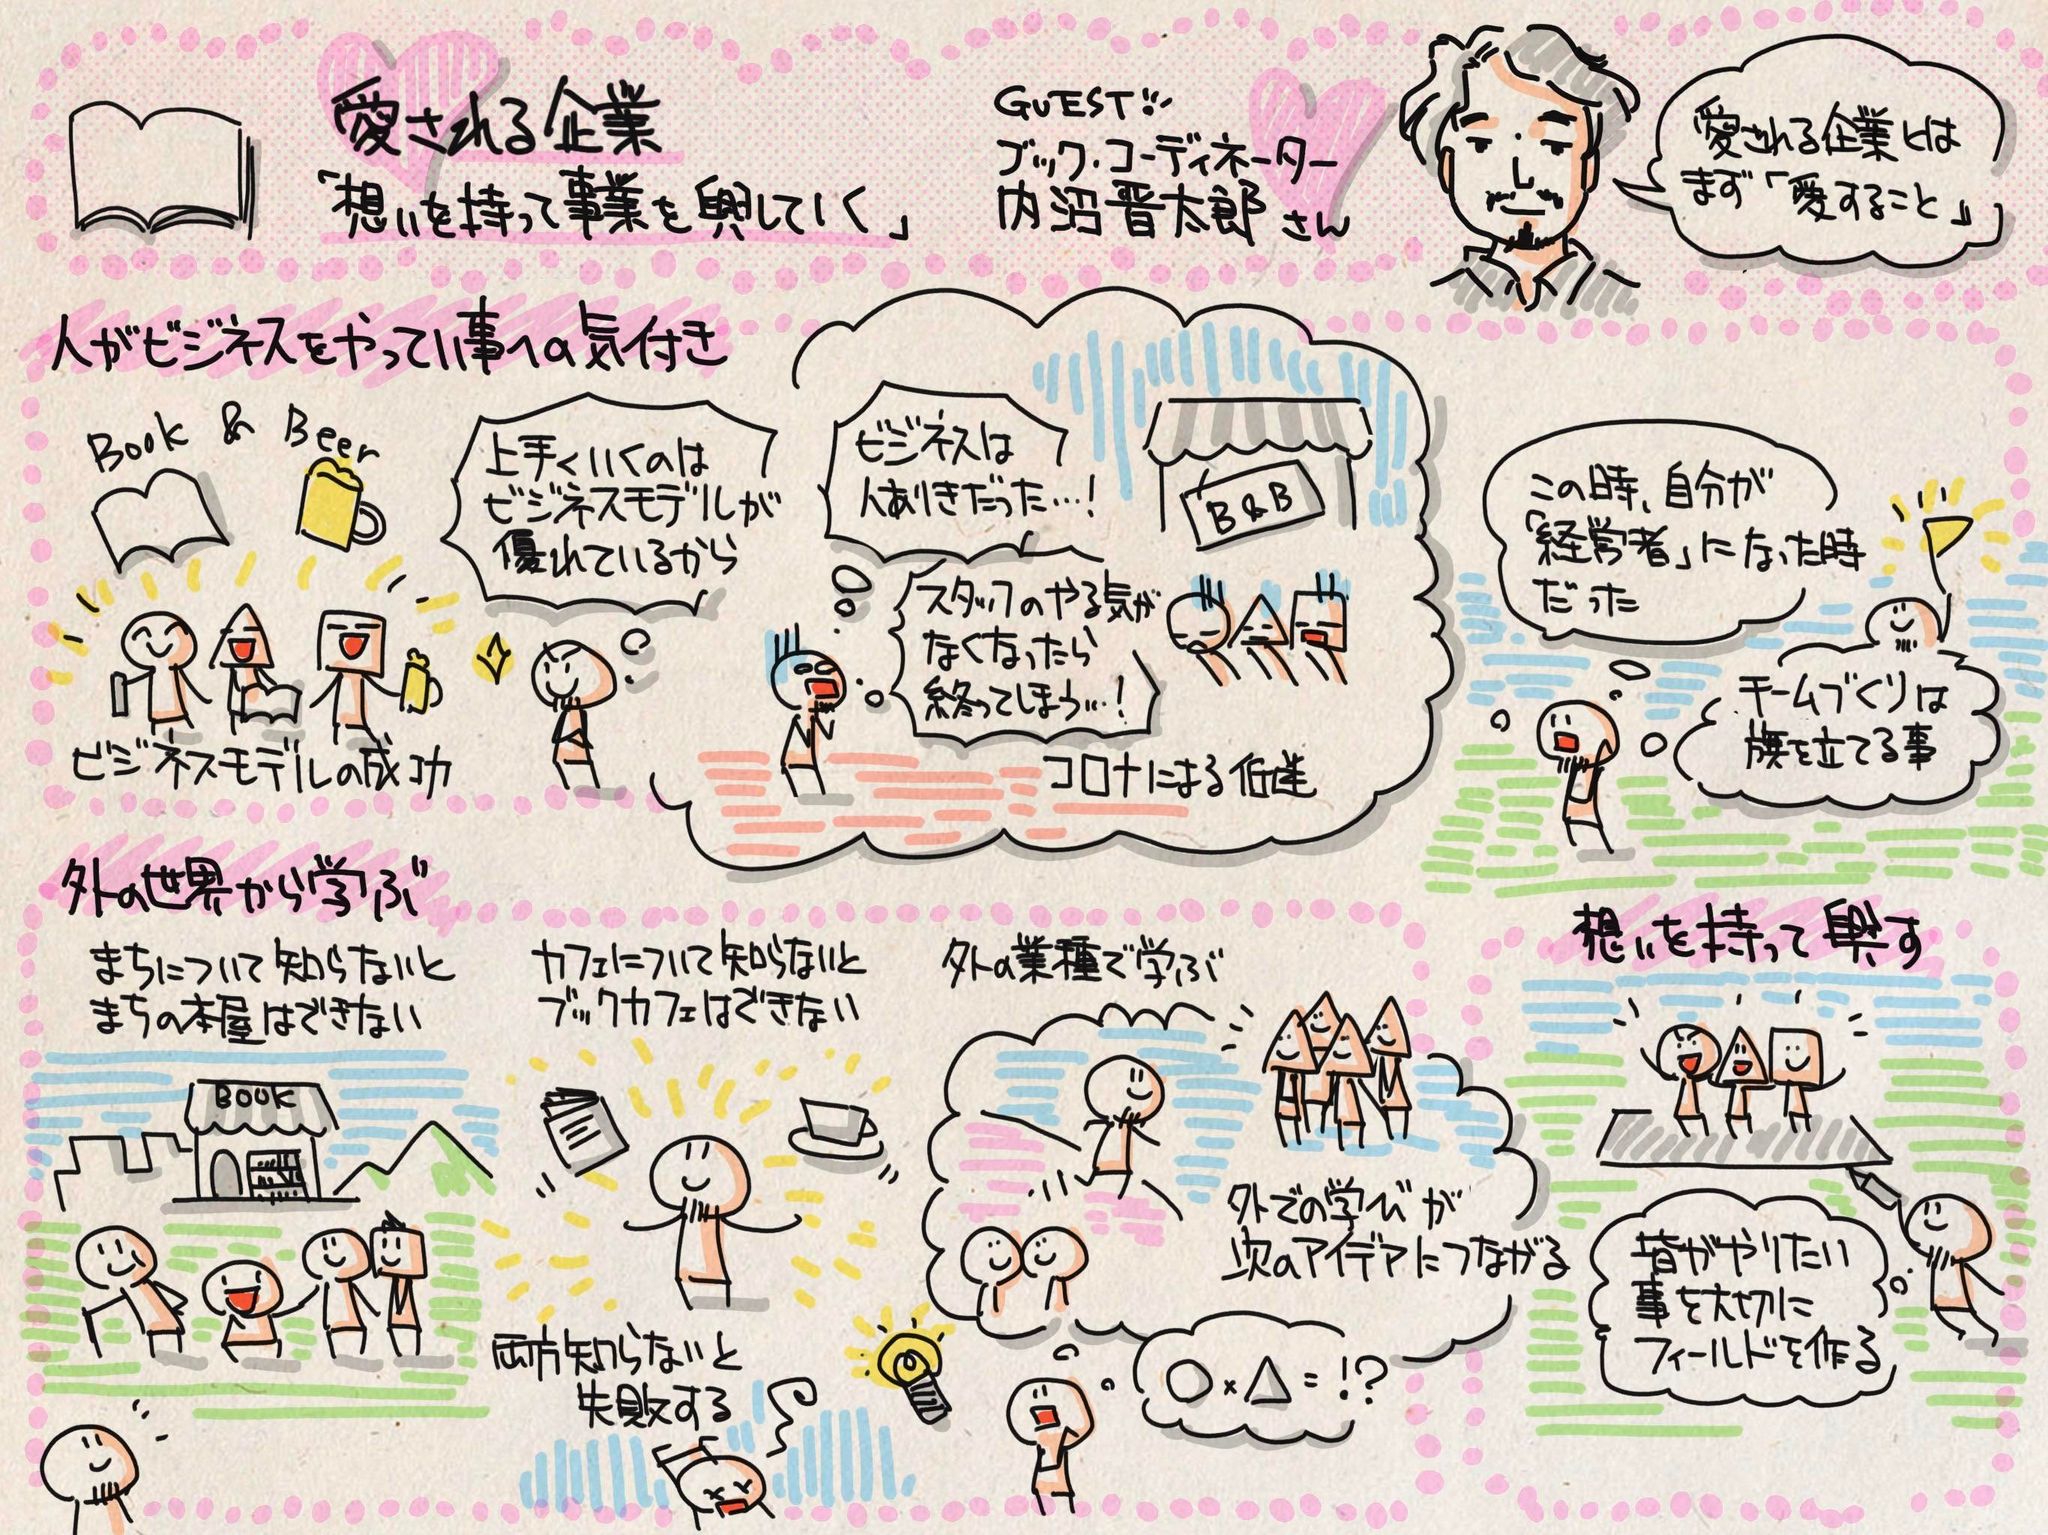 愛される企業
「想いを持って事業を興していく」
GUEST
ブック・コーディネーター
内沼晋太郎さん
愛される企業とは
まず「愛すること」
人がビジネスをやってい事への気付き
Book & Beer
ビジネスモデルの成功
上手くいくのは
ビジネスモデルが
優れているから
ビジネスは
人ありきだった…!
B&B
スタッフのやる気が
なくなったら
終ってしまう…!
コロナによる低迷
この時、自分が
「経営者」になった時
だった
チームづくりは
旗を立てる事
外の世界から学ぶ
まちについて知らないと
まちの本屋はできない
BOOK
カフェについて知らないと
ブックカフェはできない
両方知らないと
失敗する
外の業種で学ぶ
外での学びが
次のアイデアにつながる
○×△=!?
想いを持って興す
皆がやりたい
事を大切に
フィールドを作る